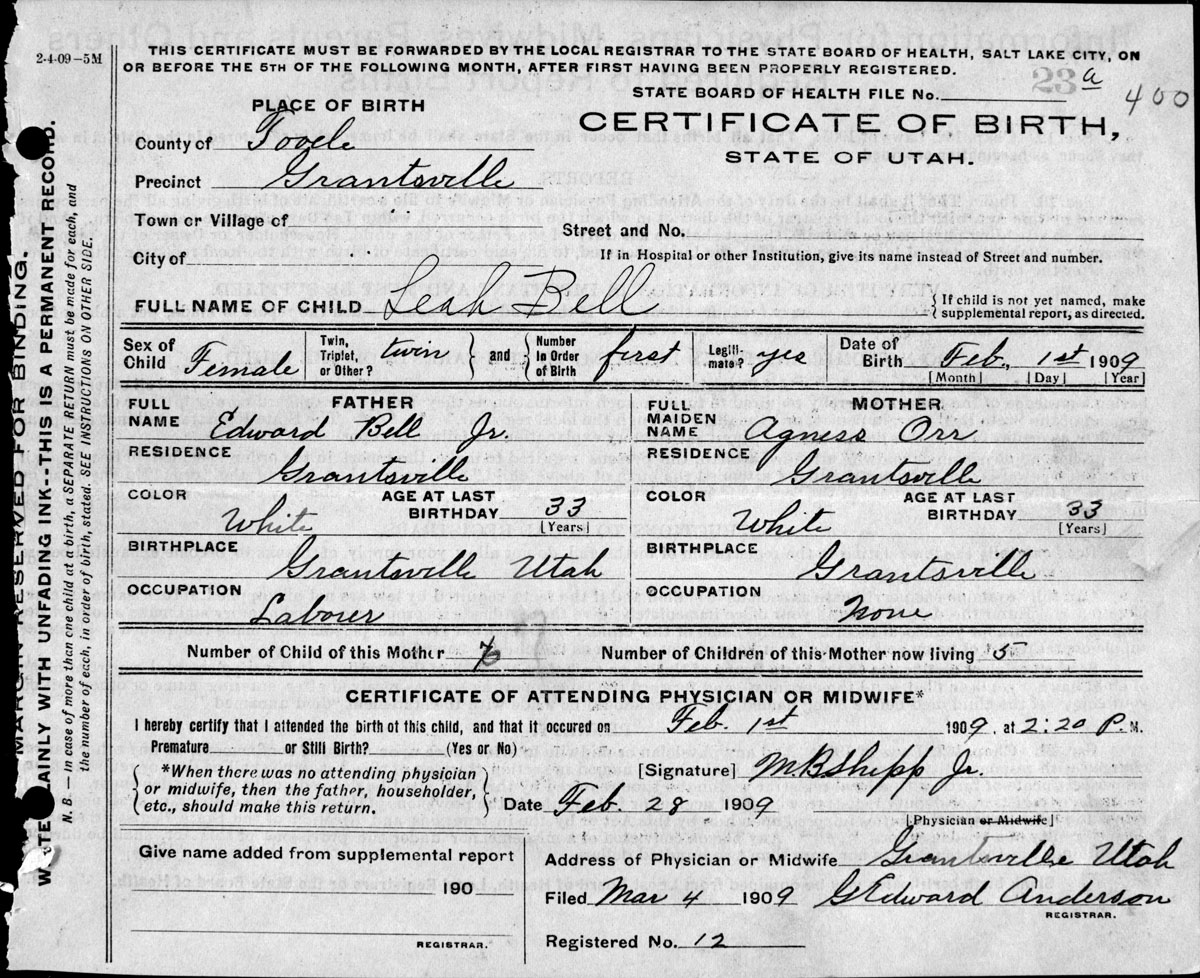 2-4-09-5M
THIS CERTIFICATE MUST BE FORWARDED BY THE LOCAL REGISTRAR TO THE STATE BOARD OF HEALTH, SALT LAKE CITY, ON
OR BEFORE THE 5TH OF THE FOLLOWING MONTH, AFTER FIRST HAVING BEEN PROPERLY REGISTERED.
STATE BOARD OF HEALTH FILE No. 23 a 400
PLACE OF BIRTH
CERTIFICATE OF BIRTH,
STATE OF UTAH.
County of Tooele
Precinct Grantsville
Town or Village of
Street and No.
City of
If in Hospital or other Institution, give its name instead of Street and number.
FULL NAME OF CHILD Leah Bell
{ If child is not yet named, make
supplemental report, as directed.
Sex of Child Female
Twin, Triplet, or Other? twin
{ and } Number in Order of Birth first
Legiti-mate? yes
Date of Birth Feb. 1st 1909
[Month] [Day] [Year]
FATHER
FULL NAME Edward Bell Jr.
MOTHER
FULL MAIDEN NAME Agness Orr
RESIDENCE Grantsville
RESIDENCE Grantsville
COLOR White
AGE AT LAST BIRTHDAY 33
[Years]
COLOR White
AGE AT LAST BIRTHDAY 33
[Years]
BIRTHPLACE Grantsville Utah
BIRTHPLACE Grantsville
OCCUPATION Labourer
OCCUPATION None
Number of Child of this Mother
Number of Children of this Mother now living 5
CERTIFICATE OF ATTENDING PHYSICIAN OR MIDWIFE*
I hereby certify that I attended the birth of this child, and that it occured on Feb. 1st 1909, at 2:20 P. M.
Premature or Still Birth? (Yes or No)
{ *When there was no attending physician
or midwife, then the father, householder,
etc., should make this return. }
[Signature] M.B. Shipp Jr.
Date Feb. 28 1909
[Physician or Midwife]
Give name added from supplemental report
190
REGISTRAR.
Address of Physician or Midwife Grantsville Utah
Filed Mar 4 1909 G Edward Anderson
REGISTRAR.
Registered No. 12
MARGIN RESERVED FOR BINDING.
WRITE PLAINLY WITH UNFADING INK--THIS IS A PERMANENT RECORD.
N. B.—In case of more than one child at a birth, a SEPARATE RETURN must be made for each, and
the number of each, in order of birth, stated. SEE INSTRUCTIONS ON OTHER SIDE.